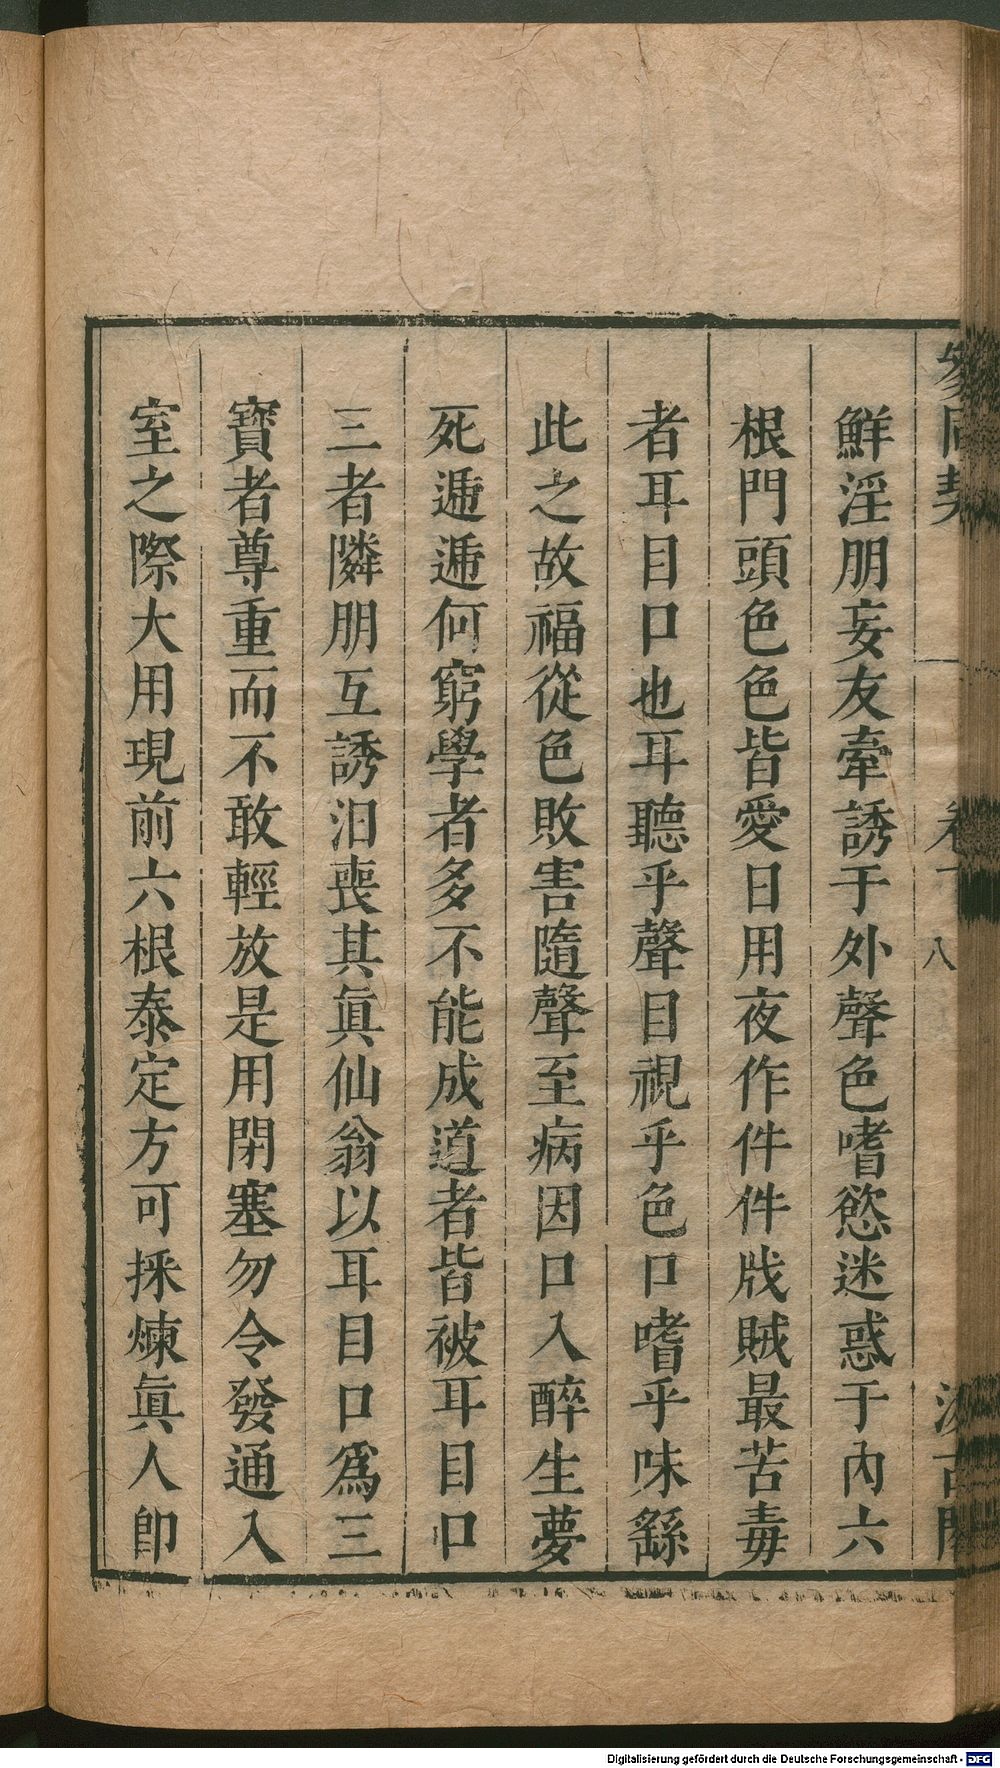 參同契 卷下 八 汲古閣
鮮淫朋妄友牽誘于外聲色嗜慾迷惑于內六
根門頭色色皆愛日用夜作件件戕賊最苦毒
者耳目口也耳聽乎聲目視乎色口嗜乎味繇
此之故福從色敗害隨聲至病因口入醉生夢
死遞遞何窮學者多不能成道者皆被耳目口
三者隣朋互誘汨喪其眞仙翁以耳目口爲三
寶者尊重而不敢輕放是用閉塞勿令發通入
室之際大用現前六根泰定方可採煉眞人卽
Digitalisierung gefördert durch die Deutsche Forschungsgemeinschaft - DFG